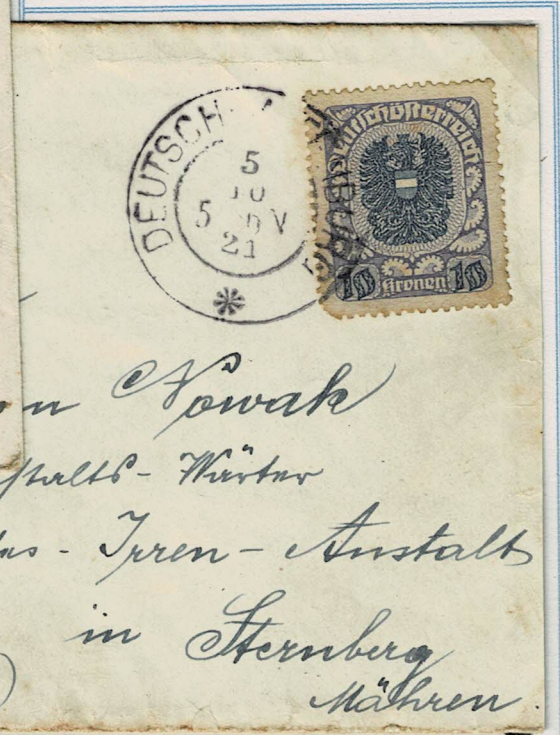 DEUTSCH-
5
10
5 V
21
Deutschösterreich
10 Kronen 10
Nowak
Wärter
Irren-Anstalt
in Sternberg
Mähren.